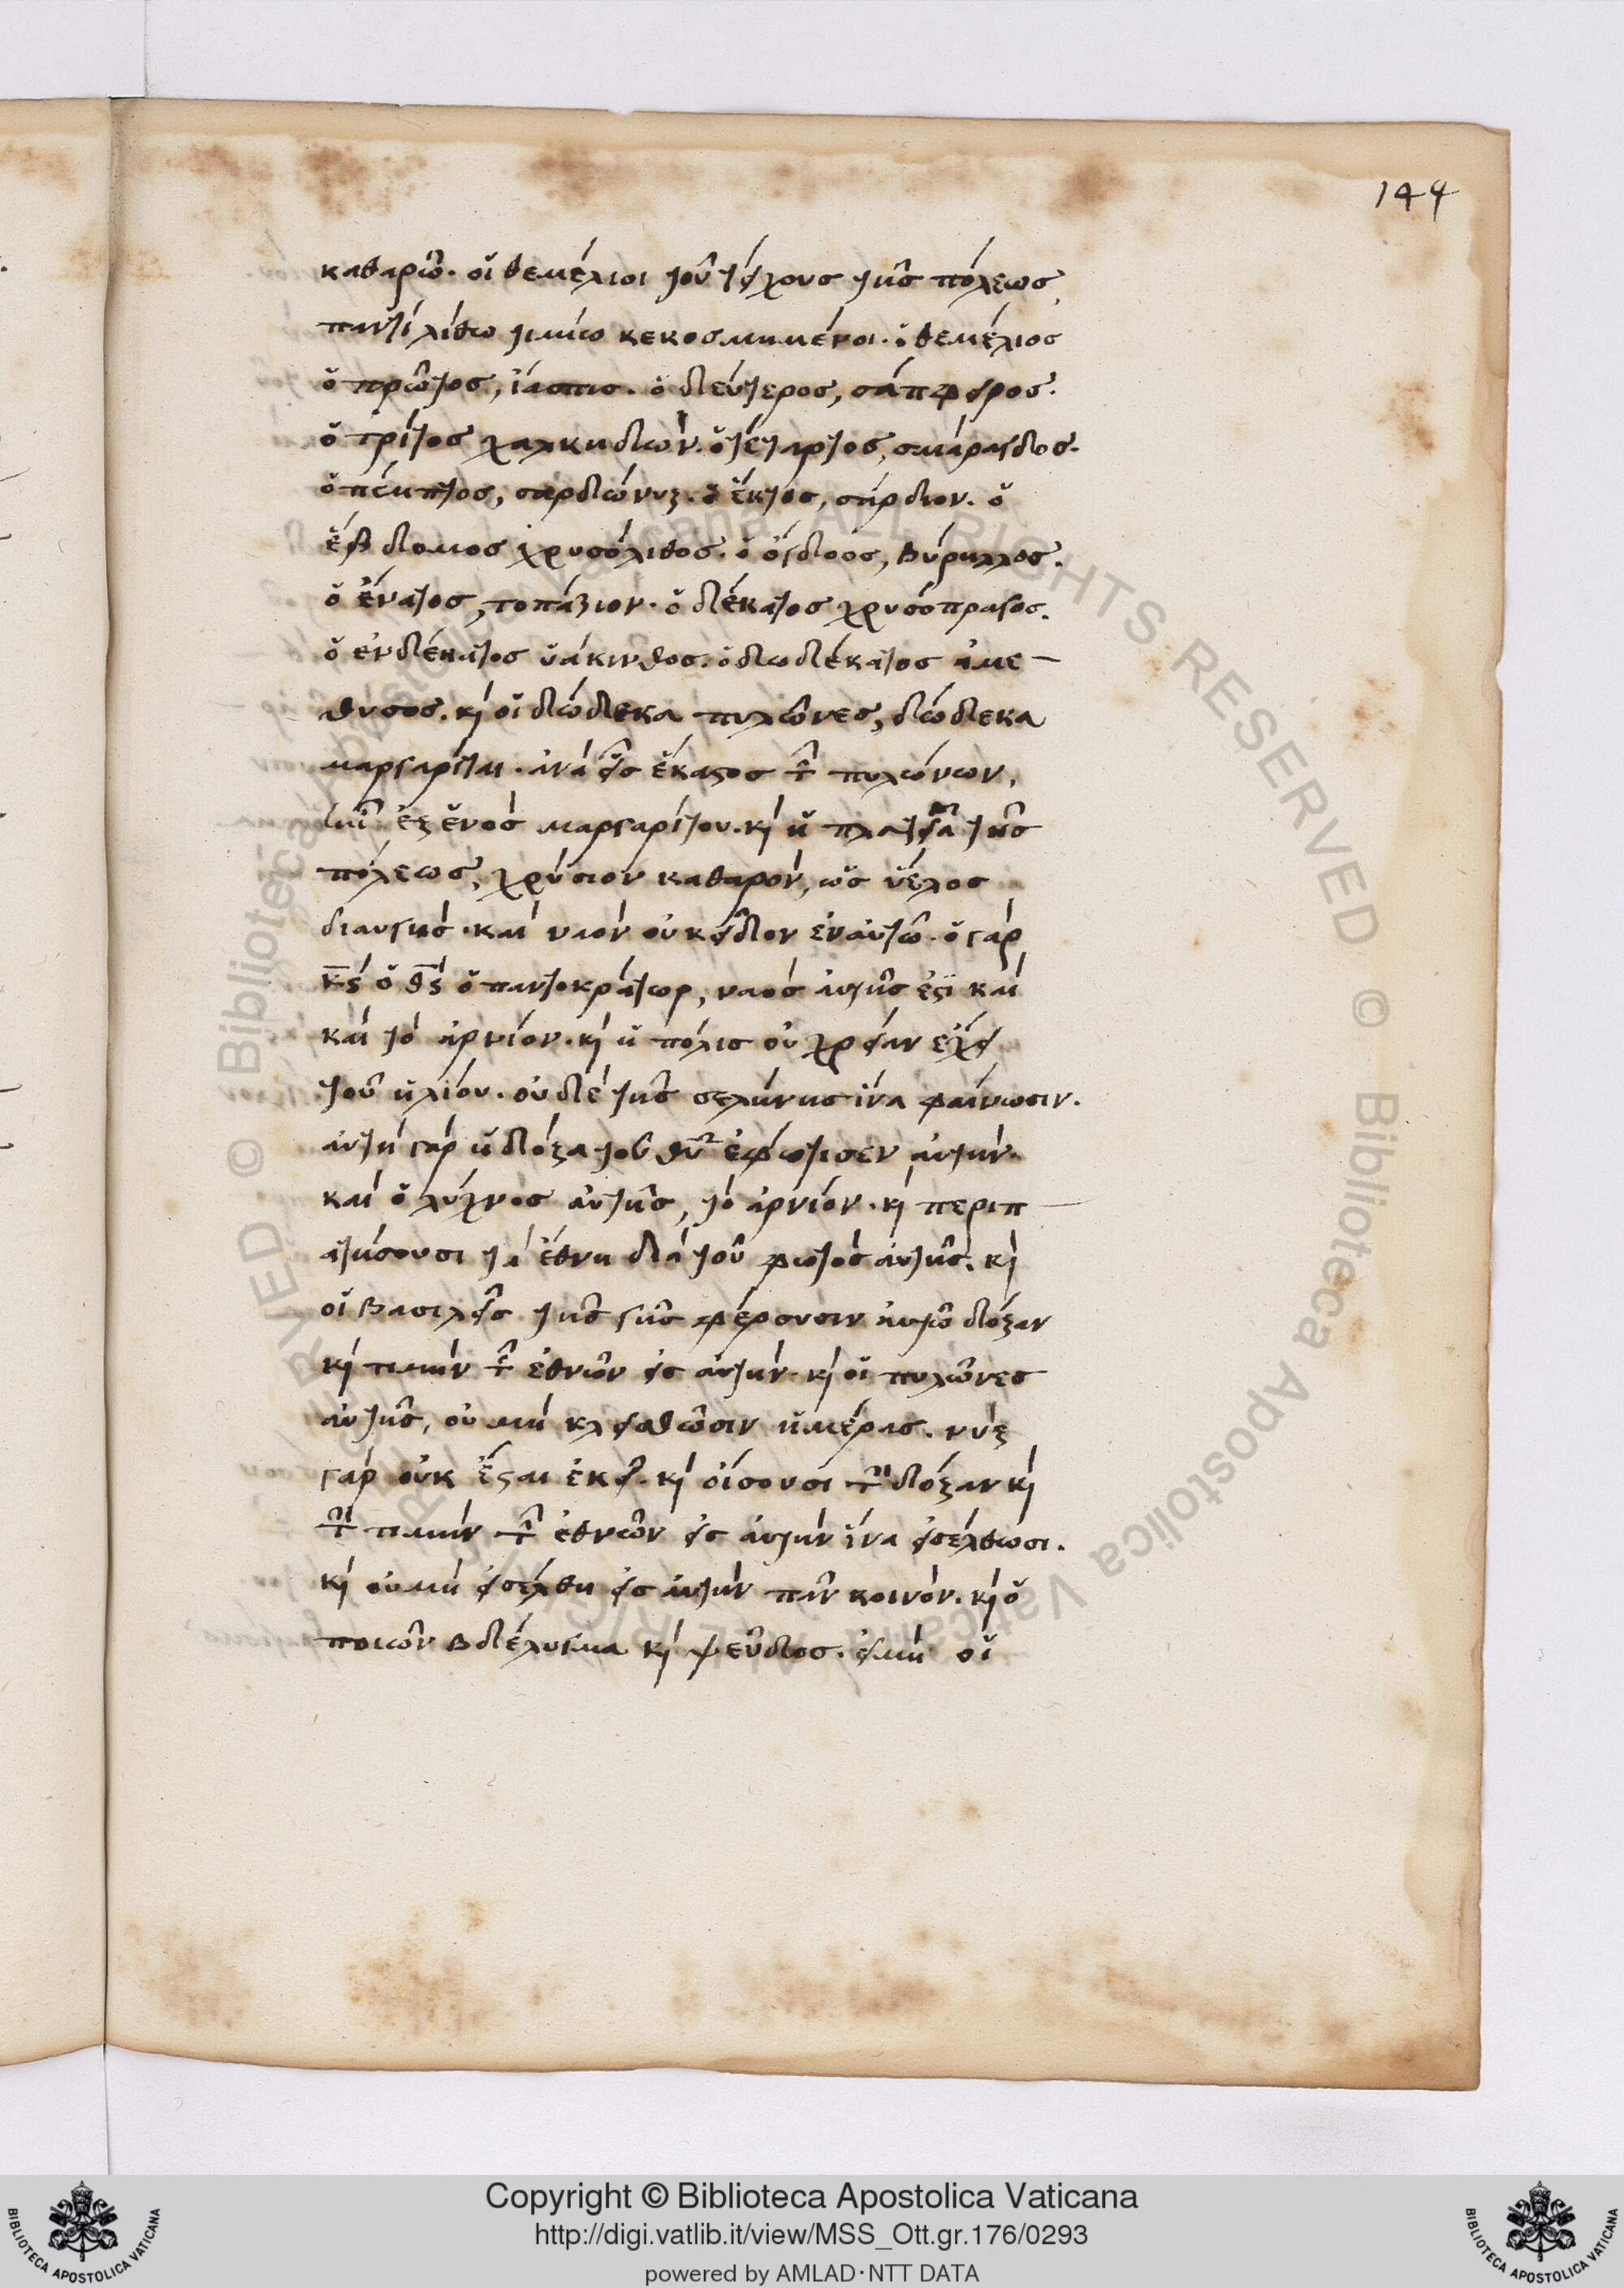 144
καθαρῶ. οἱ θεμέλιοι τοῦ τείχους τῆς πόλεως,
παντὶ λίθω τιμίω κεκοσμημένοι. ὁ θεμέλιος
ὁ πρῶτος, ἴασπις. ὁ δεύτερος, σάπφειρος.
ὁ τρίτος χαλκηδών. ὁ τέταρτος, σμάραγδος.
ὁ πέμπτος, σαρδιόνυξ. ὁ ἕκτος, σάρδιον. ὁ
ἕβδομος χρυσόλιθος. ὁ ὄγδοος, βύρηλλος.
ὁ ἔνατος, τοπάζιον. ὁ δέκατος χρυσόπρασος.
ὁ ἑνδέκατος ὑάκινθος. ὁ δωδέκατος ἀμε-
θυσος. κὶ οἱ δώδεκα πυλῶνες, δώδεκα
μαργαρίται. ἀνὰ εἷς ἕκαστος τῶν πυλώνων,
ἦν ἐξ ἑνὸς μαργαρίτου. κὶ ἡ πλατεῖα τῆς
πόλεως, χρύσιον καθαρὸν, ὡς ὕελος
διαυγής. καὶ ναὸν οὐκ εἶδον ἐν αὐτῶ. ὁ γὰρ
κς ὁ θς ὁ παντοκράτωρ, ναὸς αὐτῆς ἐστὶ καὶ
καὶ τὸ ἀρνίον. κὶ ἡ πόλις οὐ χρείαν ἔχει
τοῦ ἡλίου. οὐδὲ τῆς σελήνης ἵνα φαίνωσιν.
αὐτὴ γὰρ ἡ δόξα τοῦ θυ ἐφώτισεν αὐτήν.
καὶ ὁ λύχνος αὐτῆς, τὸ ἀρνίον. κὶ περιπ-
ατήσουσι τὰ ἔθνη διὰ τοῦ φωτὸς αὐτῆς. κὶ
οἱ βασιλεῖς τῆς γῆς φέρουσιν αὐτῶ δόξαν
κὶ τιμὴν τῶν ἐθνῶν εἰς αὐτήν. κὶ οἱ πυλῶνες
αὐτῆς, οὐ μὴ κλεισθῶσιν ἡμέρας. νὺξ
γὰρ οὐκ ἔσται ἐκεῖ. κὶ οἴσουσι τὴν δόξαν κὶ
τὴν τιμὴν τῶν ἐθνῶν εἰς αὐτὴν ἵνα εἰσέλθωσι.
κὶ οὐ μὴ εἰσέλθη εἰς αὐτὴν πᾶν κοινόν. κὶ ὁ
ποιῶν βδέλυγμα κὶ ψεῦδος. εἰ μὴ οἱ
Copyright © Biblioteca Apostolica Vaticana
http://digi.vatlib.it/view/MSS_Ott.gr.176/0293
powered by AMLAD·NTT DATA